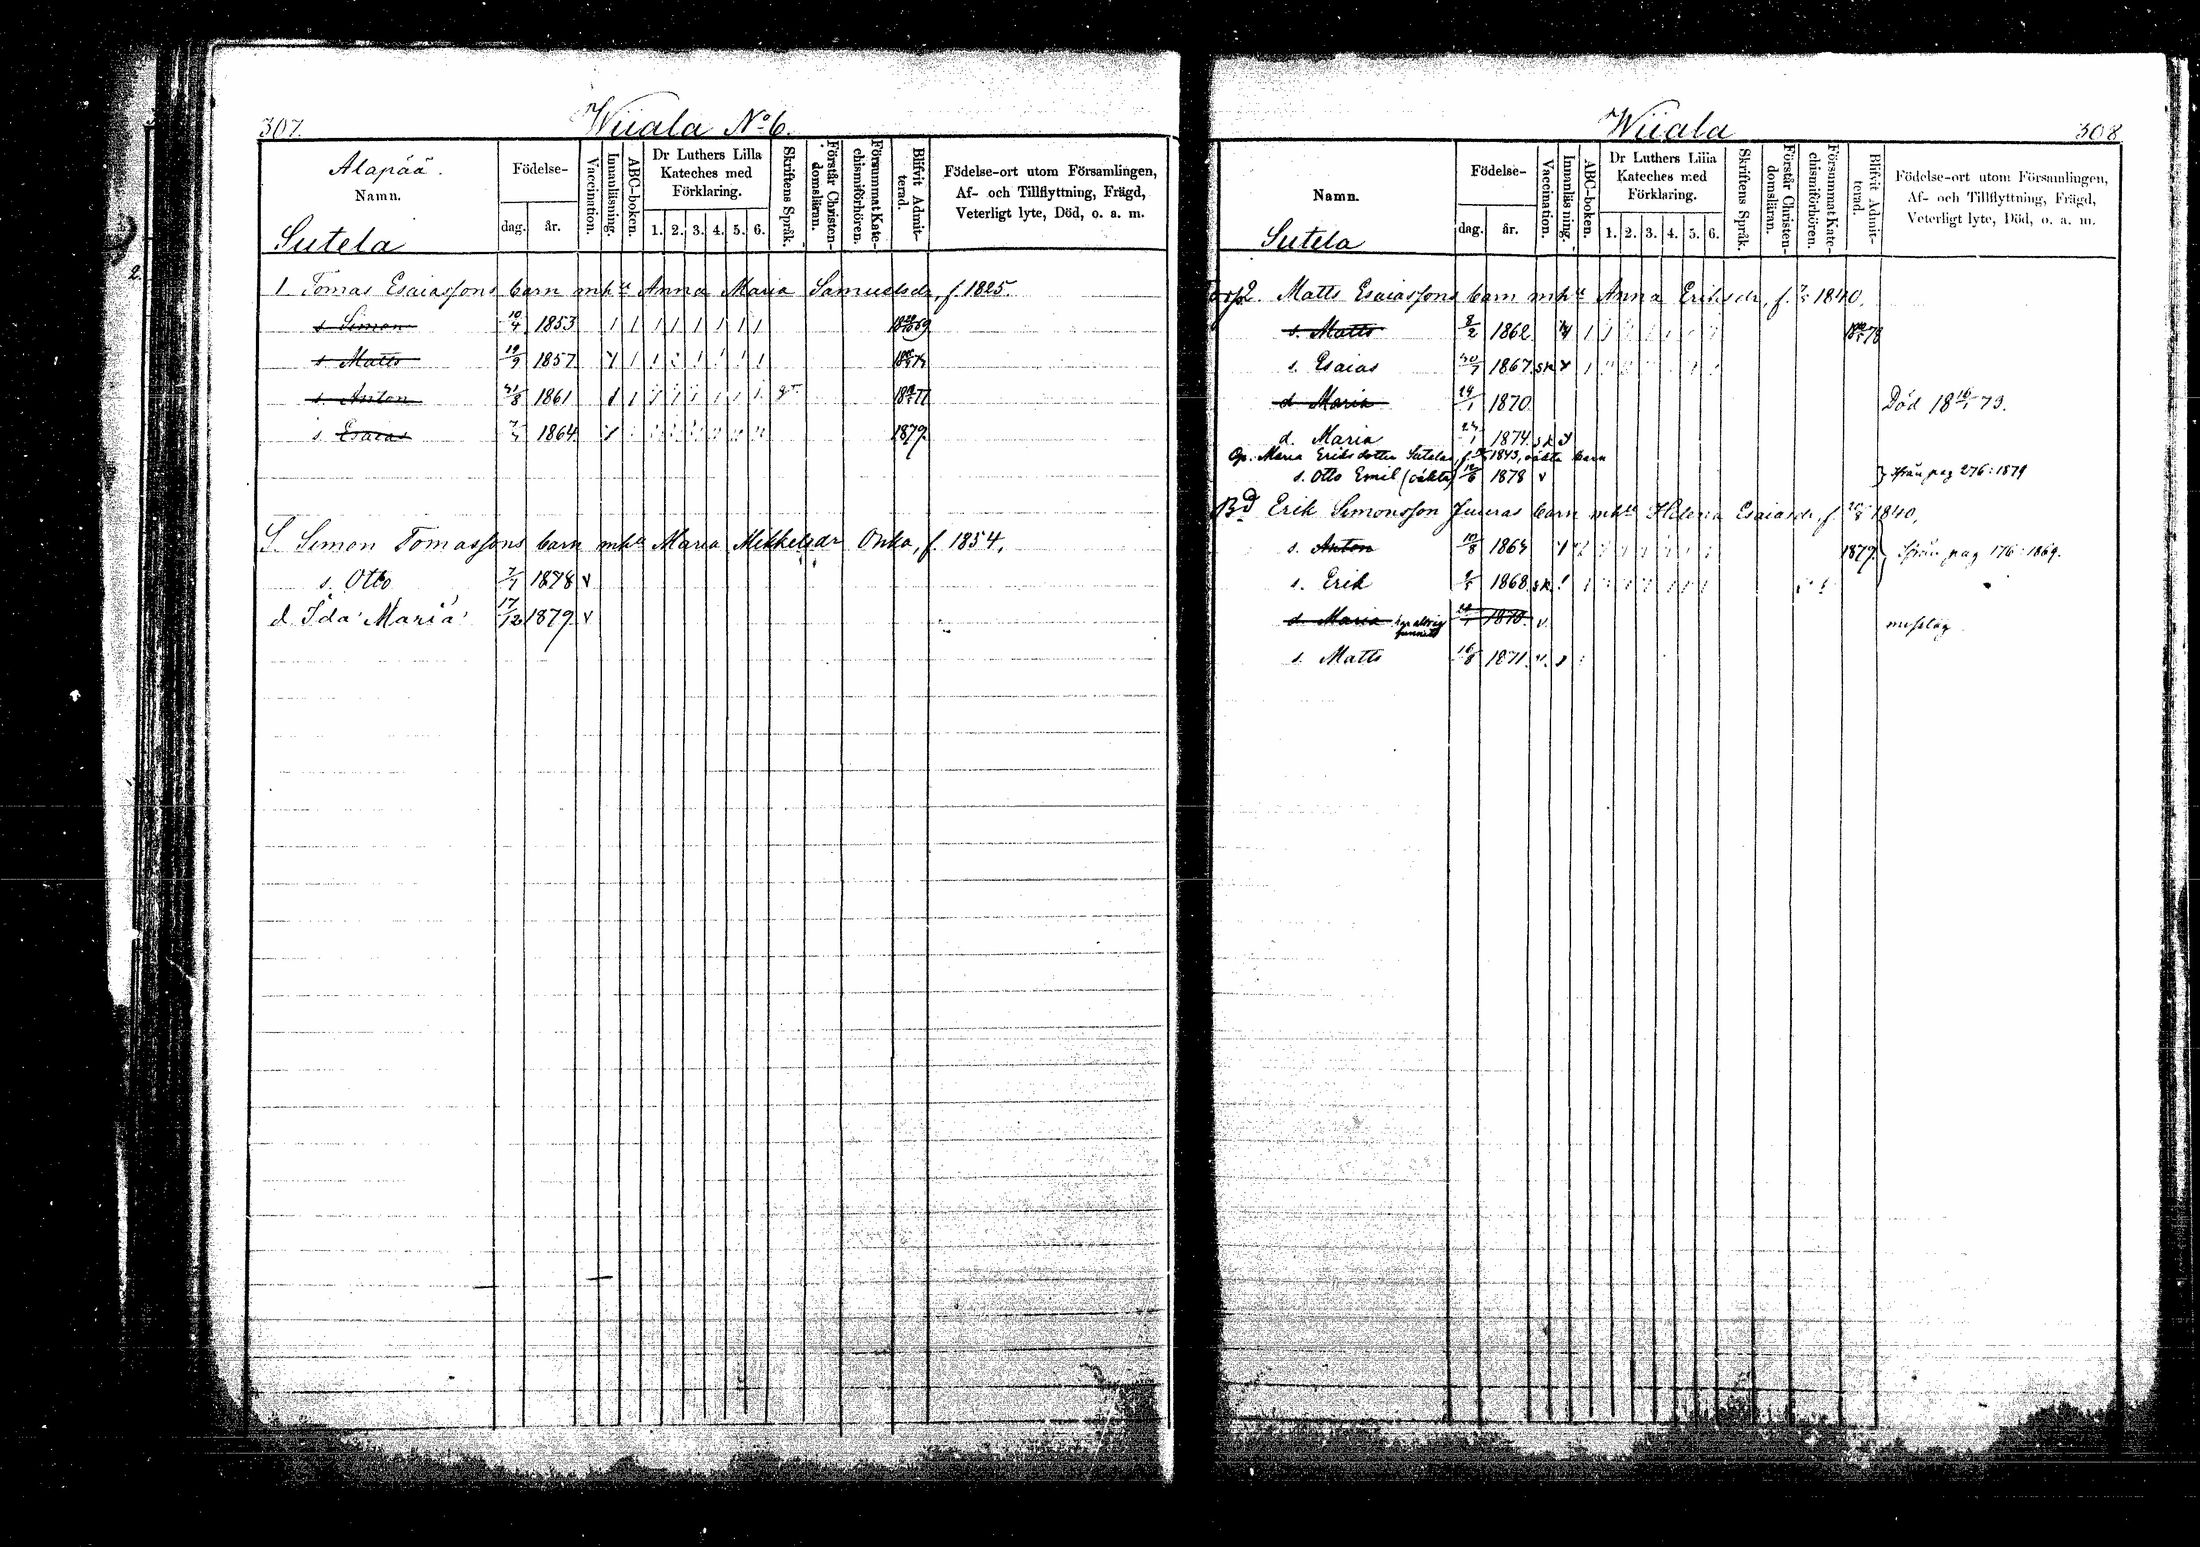 307.
Wiiala No 6.
Alapää.
Namn.
Sutela
Födelse-
dag. år.
Vaccination.
Innanläsning.
ABC-boken.
Dr Luthers Lilla
Kateches med
Förklaring.
1. 2. 3. 4. 5. 6.
Skriftens Språk.
Förstår Christen-
domsläran.
Försummat Kate-
chismiförhören.
Blifvit Admit-
terad.
Födelse-ort utom Församlingen,
Af- och Tillflyttning, Frägd,
Veterligt lyte, Död, o. a. m.
1 Tomas Esaiassons barn mh Anna Maria Samuelsdr, f. 1825.
s. Simon 10/4 1853
s. Matts 19/9 1857
s. Anton 31/8 1861
s. Esaias 1864 1879.
S. Simon Tomassons barn mh Maria Mikkelsdr Onko, f. 1854.
s. Otto 7/7 1878 v
d. Ida Maria 17/12 1879 v
Wiiala
308
Namn.
Sutela
Födelse-
dag. år.
Vaccination.
Innanläsning.
ABC-boken.
Dr Luthers Lilla
Kateches med
Förklaring.
1. 2. 3. 4. 5. 6.
Skriftens Språk.
Förstår Christen-
domsläran.
Försummat Kate-
chismiförhören.
Blifvit Admit-
terad.
Födelse-ort utom Församlingen,
Af- och Tillflyttning, Frägd,
Veterligt lyte, Död, o. a. m.
Torp 2. Matts Esaiassons barn mh Anna Eriksdr, f. 1840.
s. Matts 8/2 1862
s. Esaias 30/7 1867 sk
d. Maria 24/1 1870 Död 18 16/1 73.
d. Maria 1874 sk
Maria Eriksdotter Sutela, f. 1843, oäkta barn
s. Otto Emil (oäkta) 1878 v från pag 276: 1879
Bd Erik Simonsson Juuras barn mh Helena Esaiasdr, f. 1840,
s. Anton 10/8 1864 1879. från pag 176: 1869.
s. Erik 1868 sk
d. Maria har aldrig funnits 1870 v.
s. Matts 16/8 1871 v.